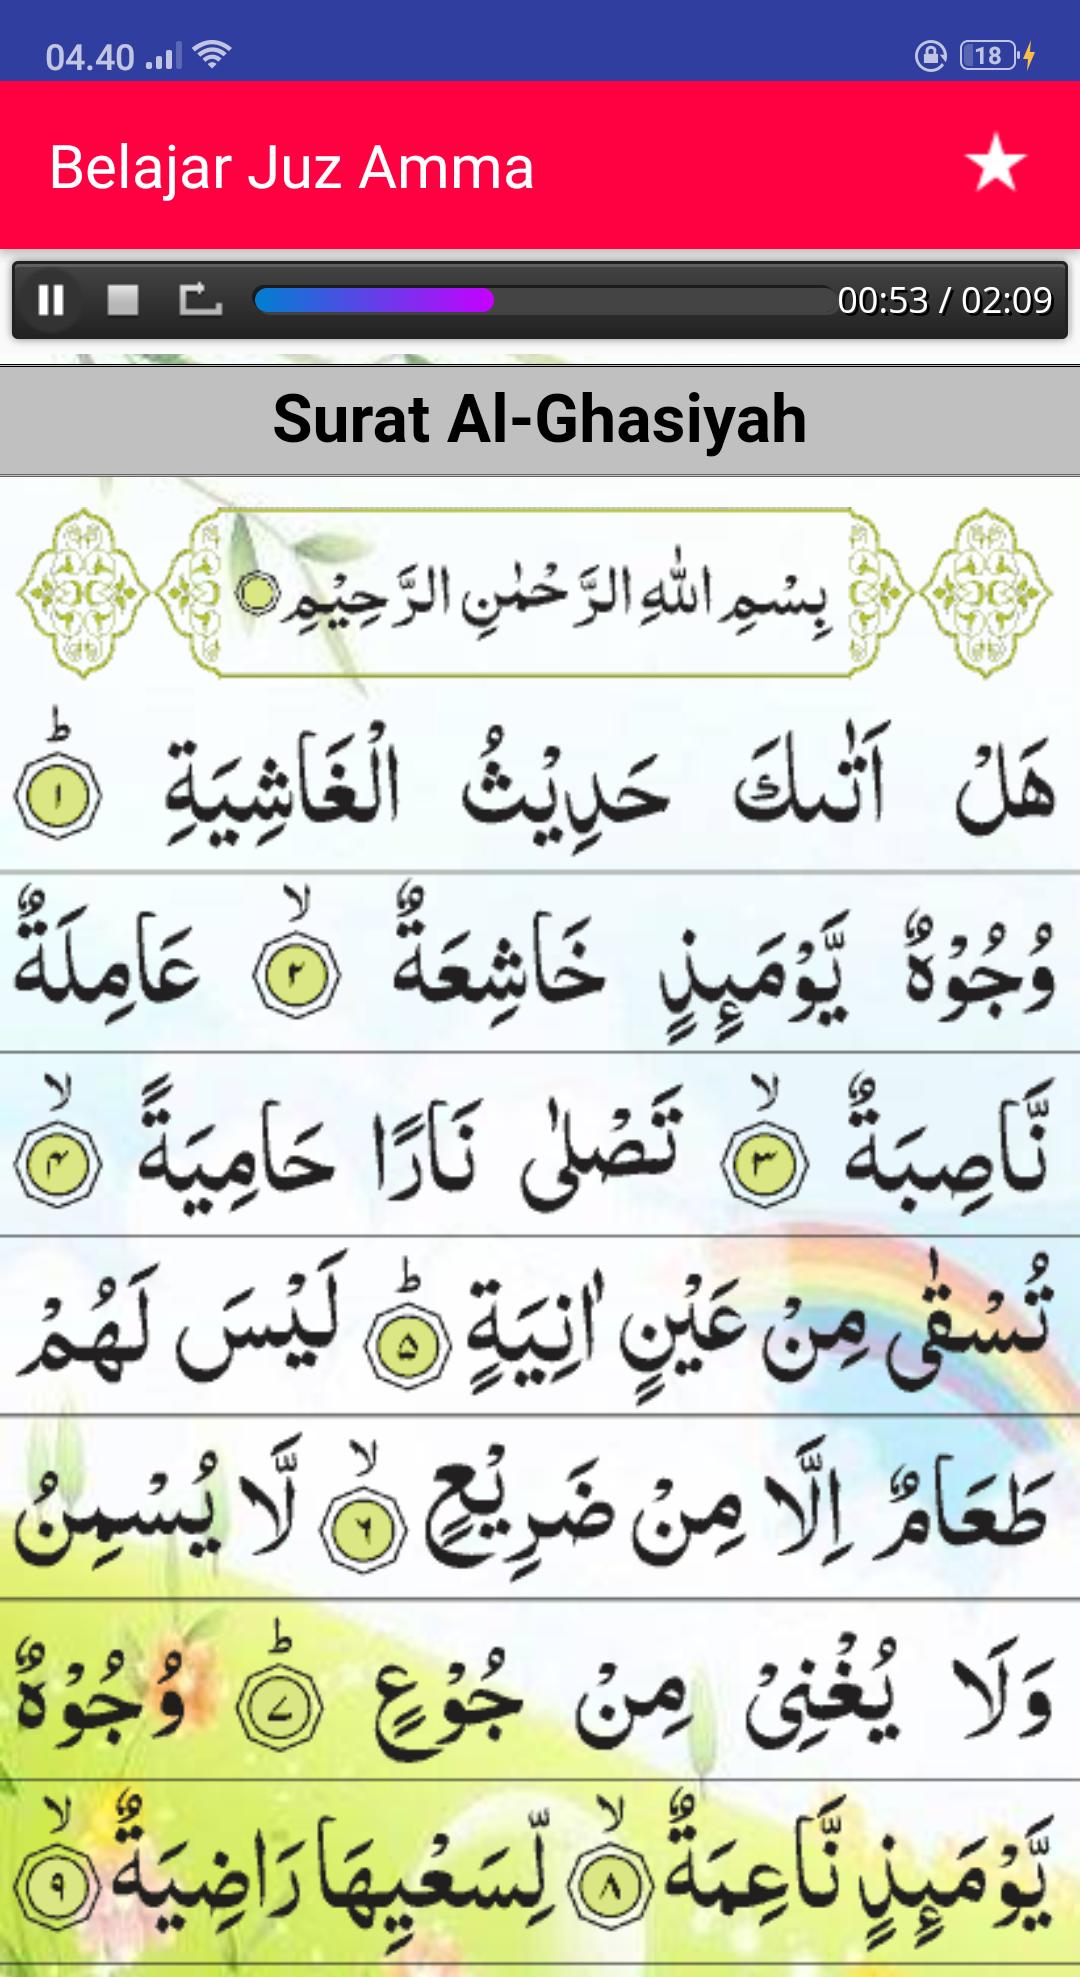 04.40
18
Belajar Juz Amma
00:53 / 02:09
Surat Al-Ghasiyah
بِسْمِ اللّٰهِ الرَّحْمٰنِ الرَّحِيْمِ
هَلْ اَتٰىكَ حَدِيْثُ الْغَاشِيَةِ ۗ ١
وُجُوْهٌ يَّوْمَىِٕذٍ خَاشِعَةٌ ۙ ٢ عَامِلَةٌ
نَّاصِبَةٌ ۙ ٣ تَصْلٰى نَارًا حَامِيَةً ۙ ۴
تُسْقٰى مِنْ عَيْنٍ اٰنِيَةٍ ۗ ۵ لَيْسَ لَهُمْ
طَعَامٌ اِلَّا مِنْ ضَرِيْعٍ ۙ ۶ لَّا يُسْمِنُ
وَلَا يُغْنِيْ مِنْ جُوْعٍ ۗ ۷ وُجُوْهٌ
يَّوْمَىِٕذٍ نَّاعِمَةٌ ۙ ٨ لِّسَعْيِهَا رَاضِيَةٌ ۙ ٩